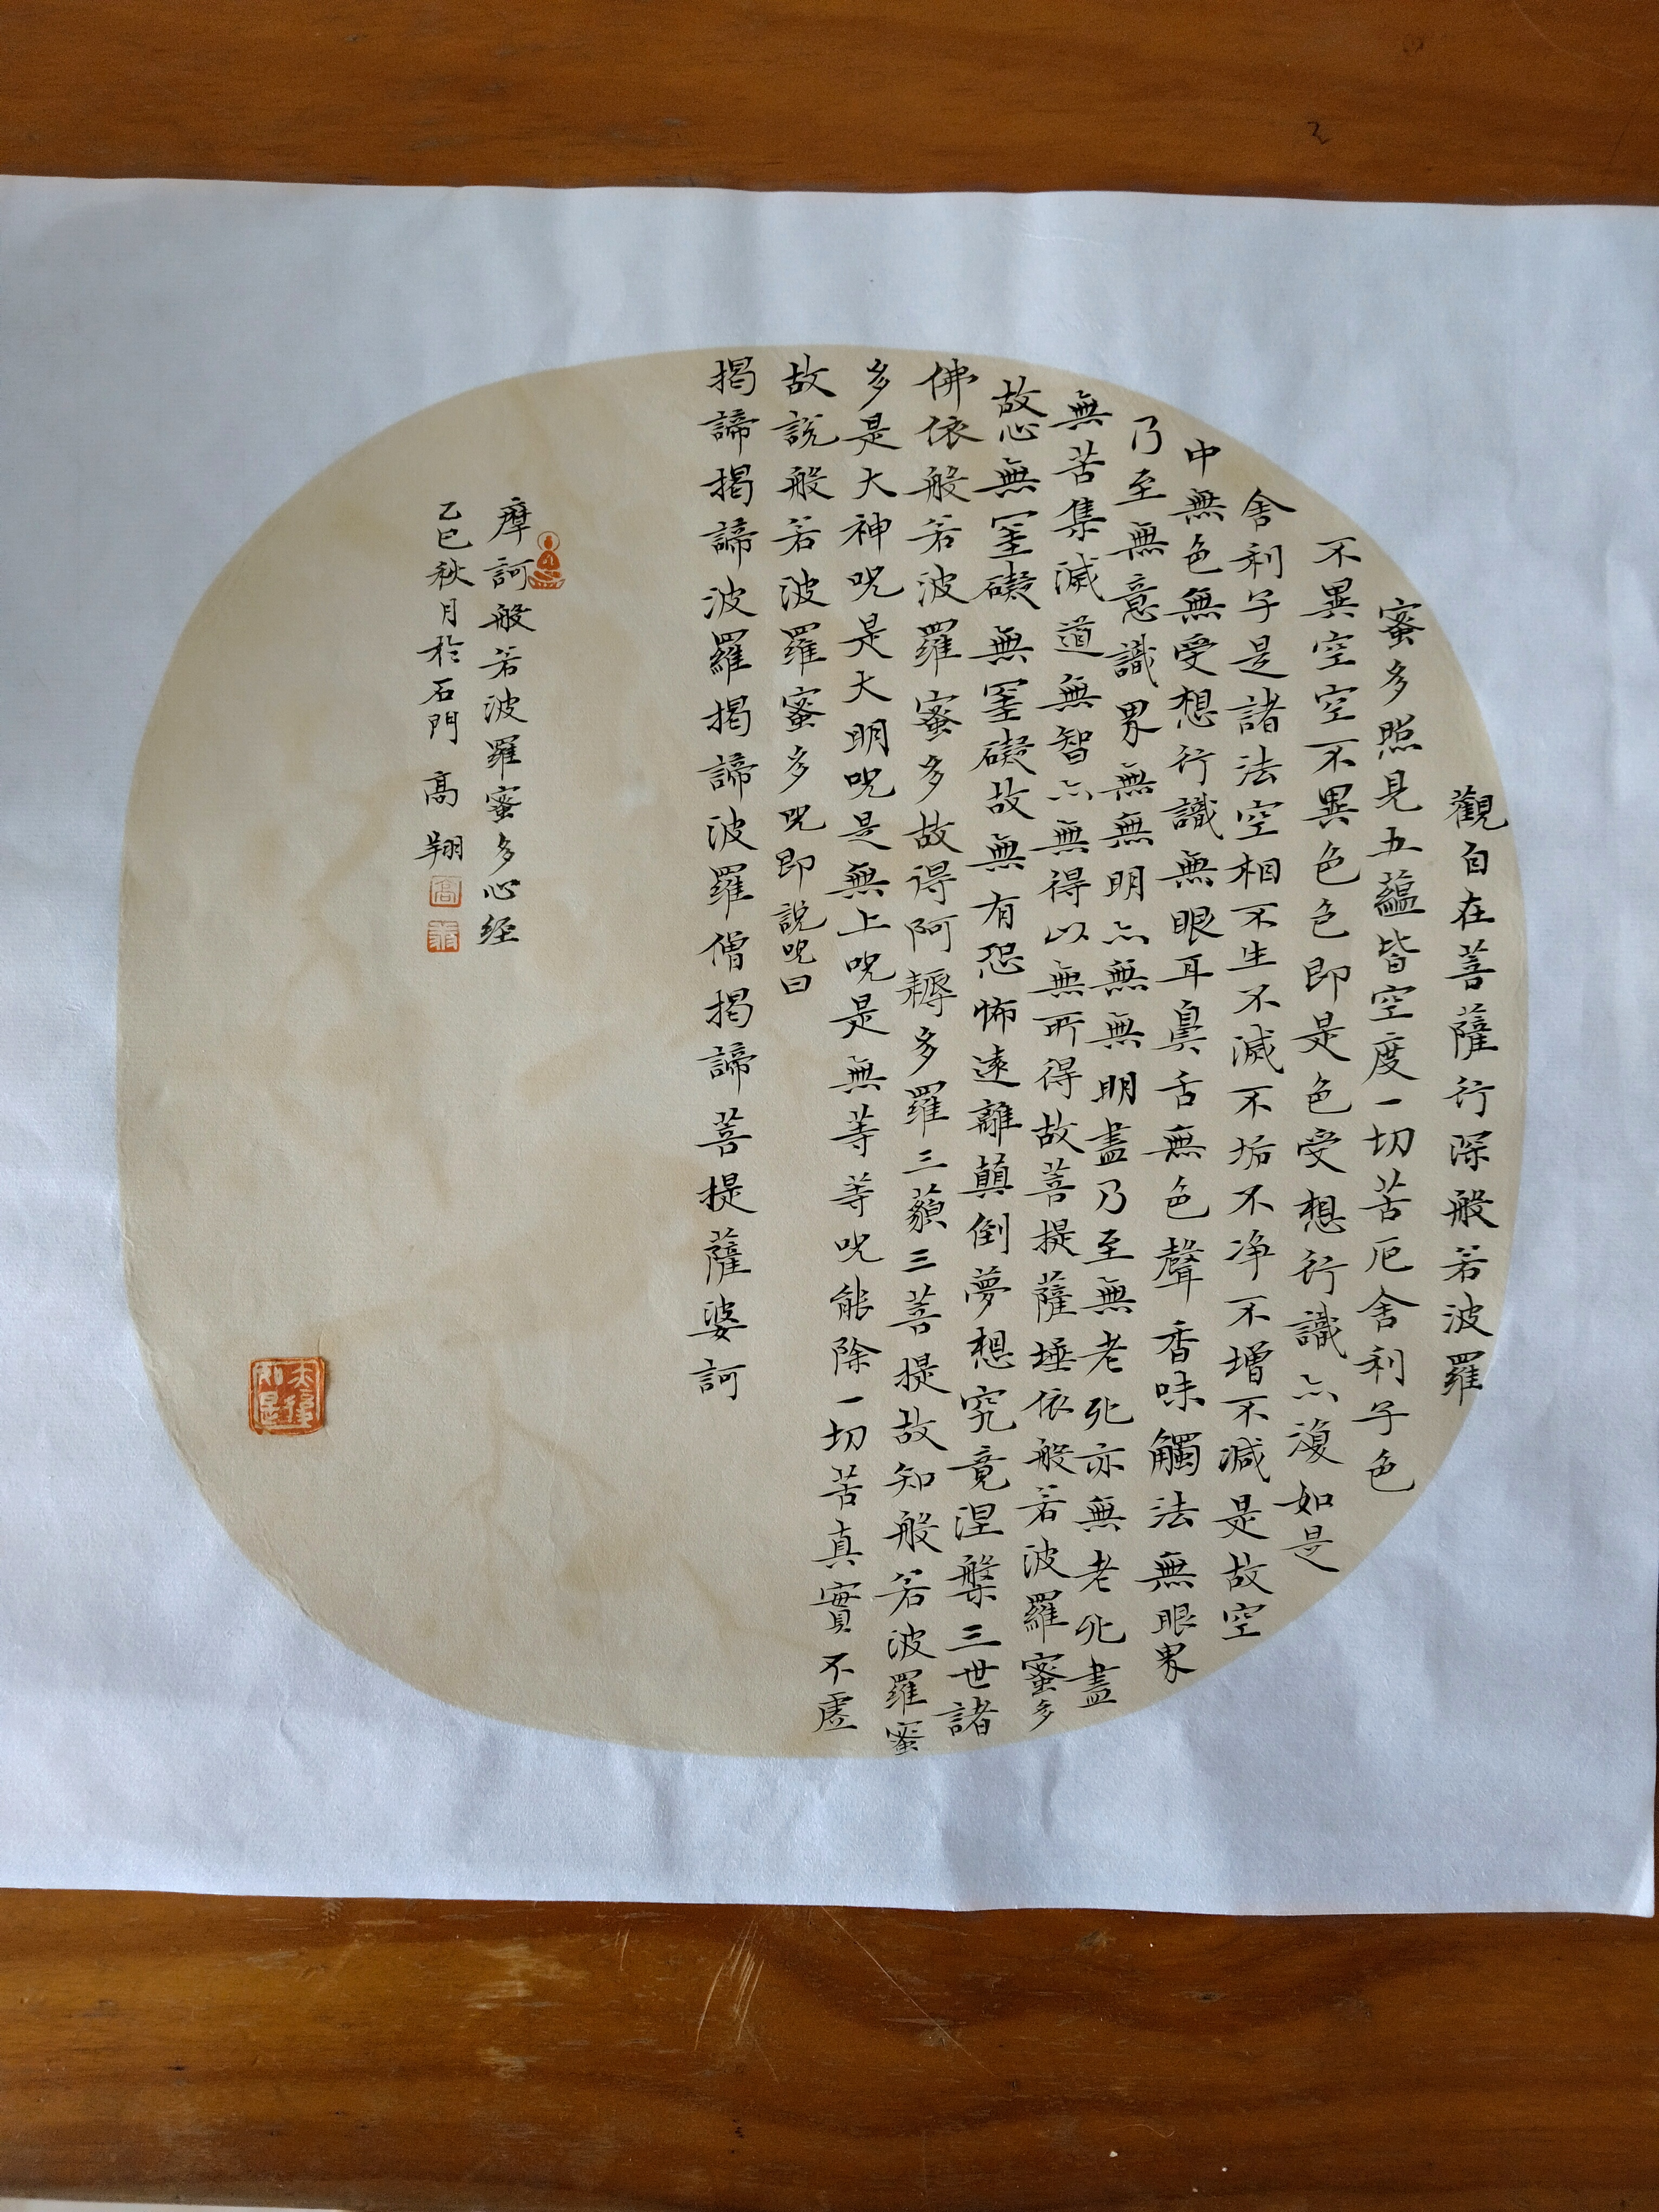 觀自在菩薩行深般若波羅
蜜多照見五蘊皆空度一切苦厄舍利子色
不異空空不異色色即是色受想行識亦復如是
舍利子是諸法空相不生不滅不垢不净不增不減是故空
中無色無受想行識無眼耳鼻舌無色聲香味觸法無眼界
乃至無意識界無無明亦無無明盡乃至無老死亦無老死盡
無苦集滅道無智亦無得以無所得故菩提薩埵依般若波羅蜜多
故心無罣礙無罣礙故無有恐怖遠離顛倒夢想究竟涅槃三世諸
佛依般若波羅蜜多故得阿耨多羅三藐三菩提故知般若波羅蜜
多是大神咒是大明咒是無上咒是無等等咒能除一切苦真實不虛
故說般若波羅蜜多咒即說咒曰
揭諦揭諦波羅揭諦波羅僧揭諦菩提薩婆訶
摩訶般若波羅蜜多心经
乙巳秋月於石門 高翔